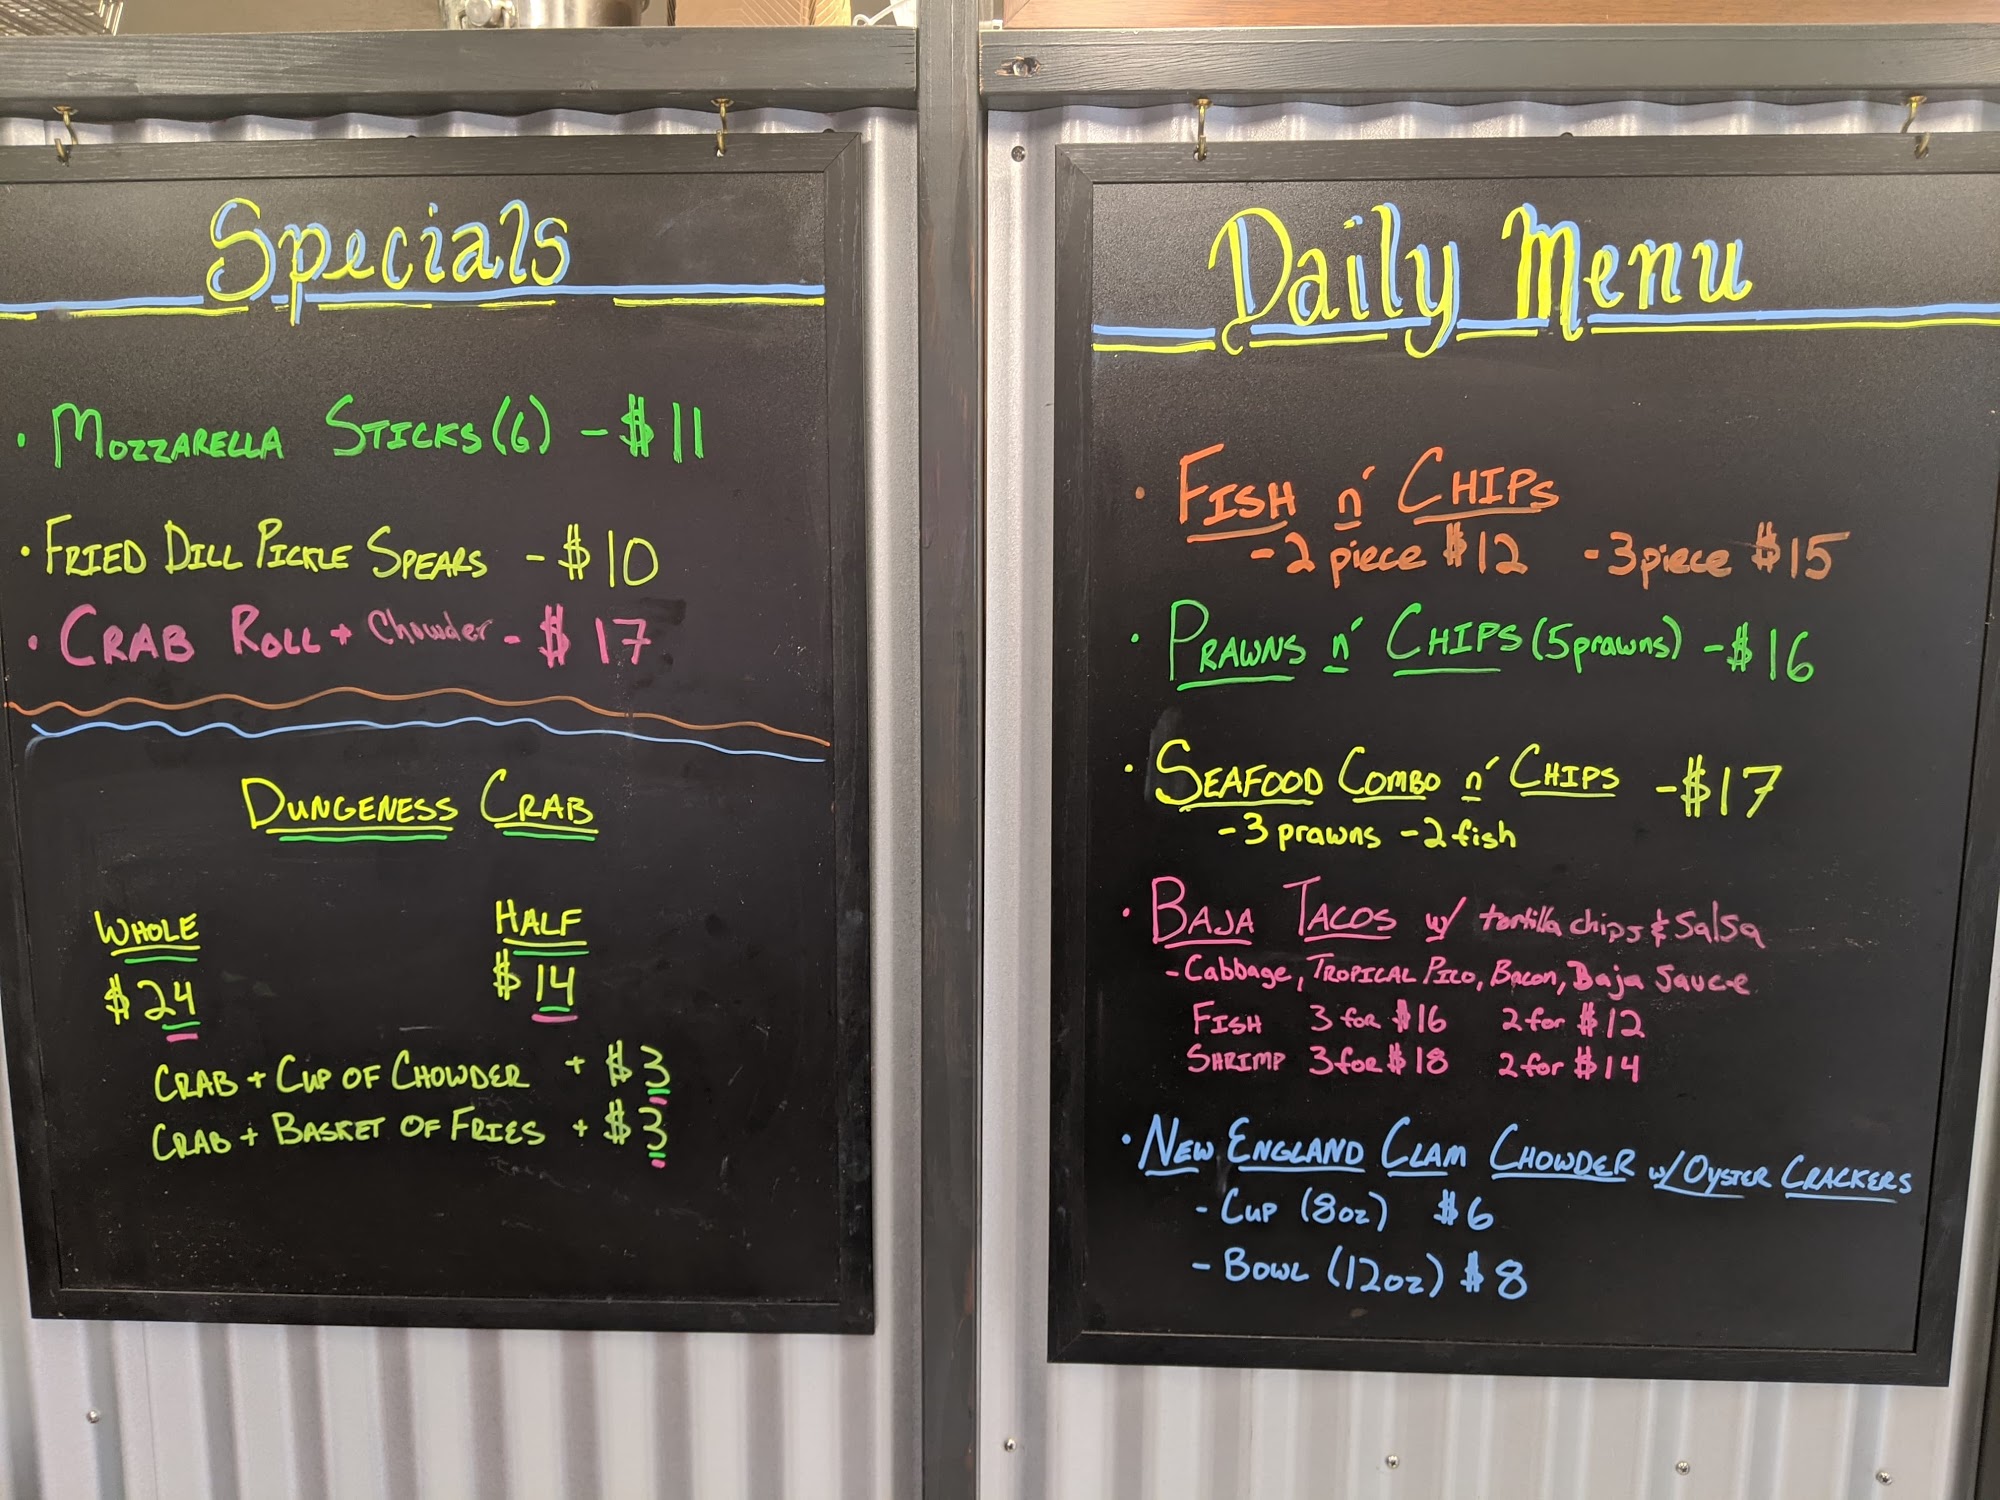 Specials
• MOZZARELLA STICKS (6) - $11
• FRIED DILL PICKLE SPEARS - $10
• CRAB ROLL + Chowder - $17
DUNGENESS CRAB
WHOLE HALF
$24 $14
CRAB + CUP OF CHOWDER + $3
CRAB + BASKET OF FRIES + $3
Daily Menu
• FISH n' CHIPS
- 2 piece $12 - 3 piece $15
• PRAWNS n' CHIPS (5 prawns) - $16
• SEAFOOD COMBO n' CHIPS - $17
- 3 prawns - 2 fish
• BAJA TACOS w/ tortilla chips & salsa
- Cabbage, TROPICAL PICO, Bacon, Baja Sauce
FISH 3 for $16 2 for $12
SHRIMP 3 for $18 2 for $14
• NEW ENGLAND CLAM CHOWDER w/ OYSTER CRACKERS
- CUP (8oz) $6
- BOWL (12oz) $8